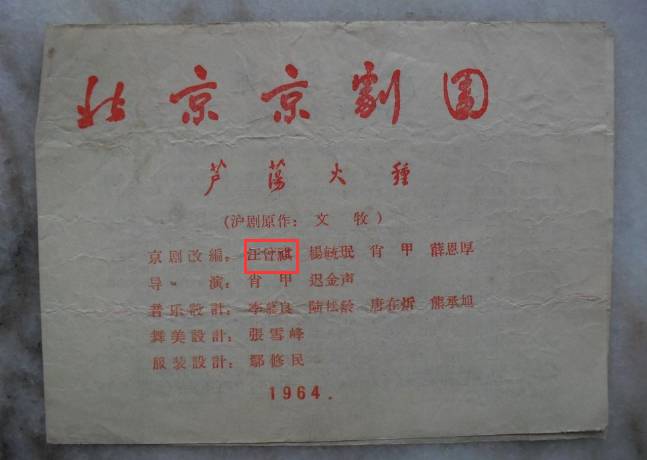 北京京劇團
芦蕩火種
(沪剧原作：文牧)
京剧改編：汪曾祺 楊毓珉 肖甲 薛恩厚
导演：肖甲 迟金声
音乐設計：李慕良 陆松龄 唐在炘 熊承旭
舞美設計：張雪峰
服装設計：鄢修民
1964.